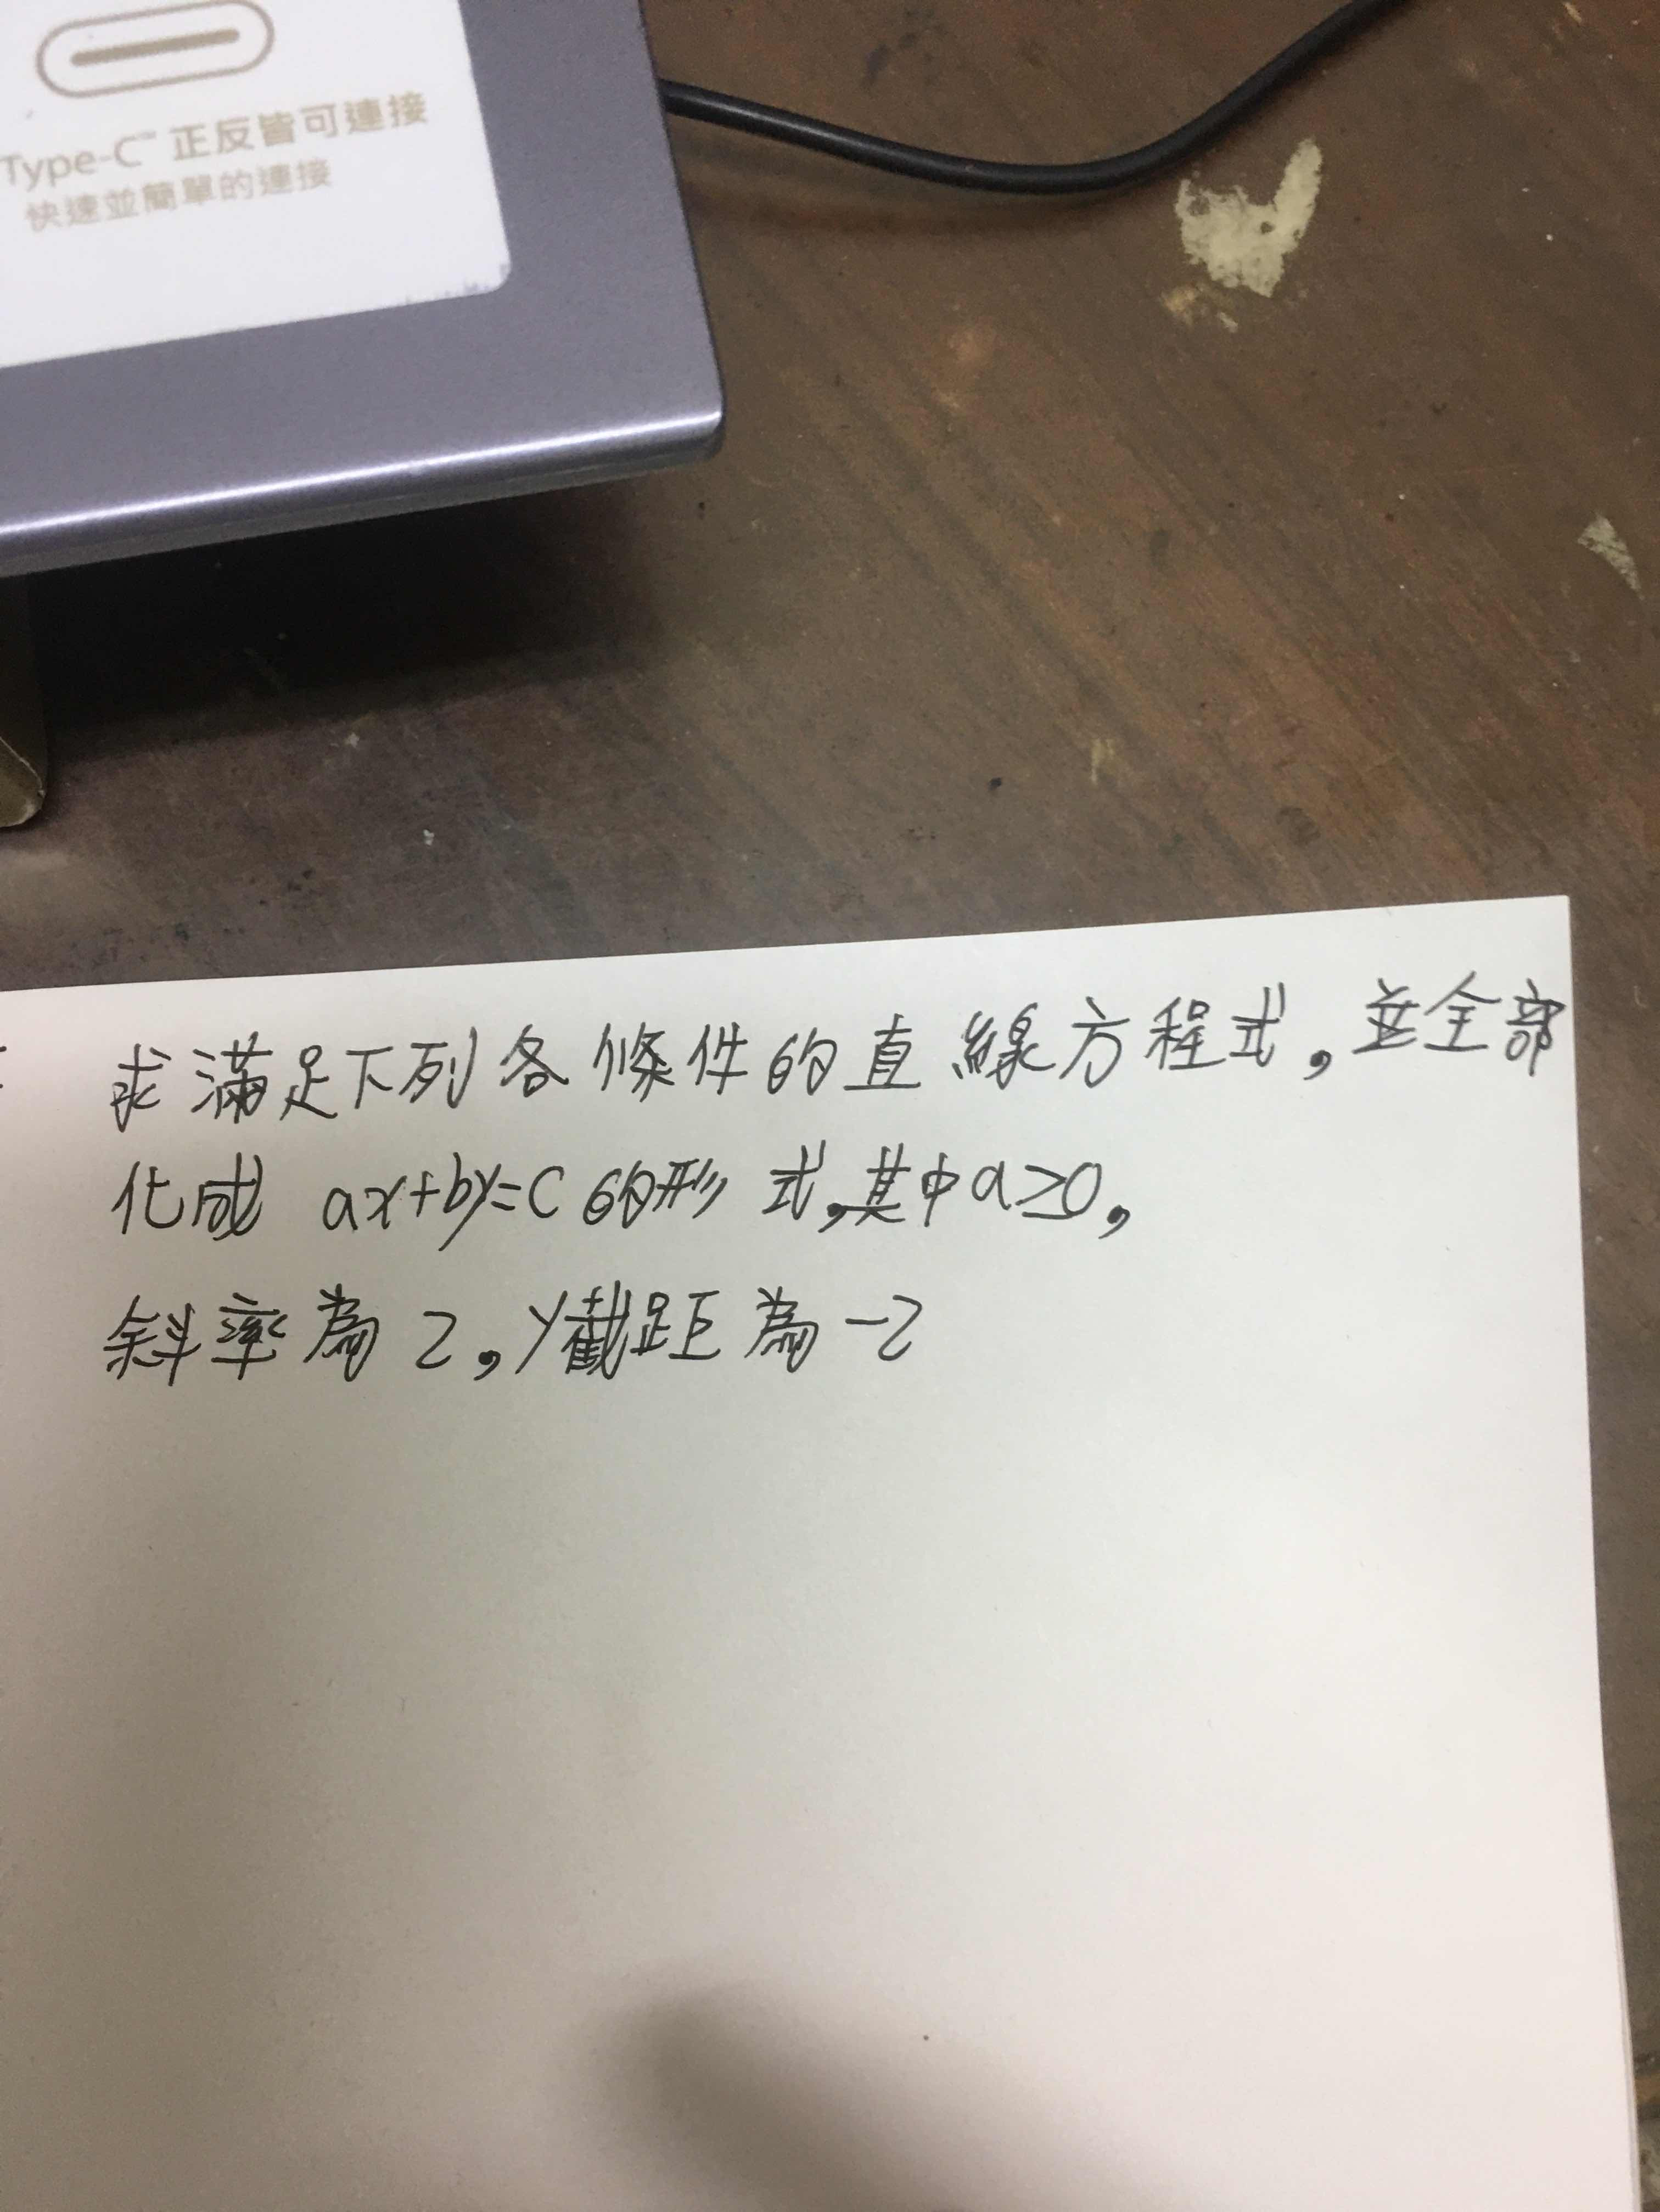 Type-C™ 正反皆可連接
快速並簡單的連接
求滿足下列各條件的直線方程式,並全部
化成 ax+by=c 的形式,其中a≥0,
斜率為2,y截距為-2